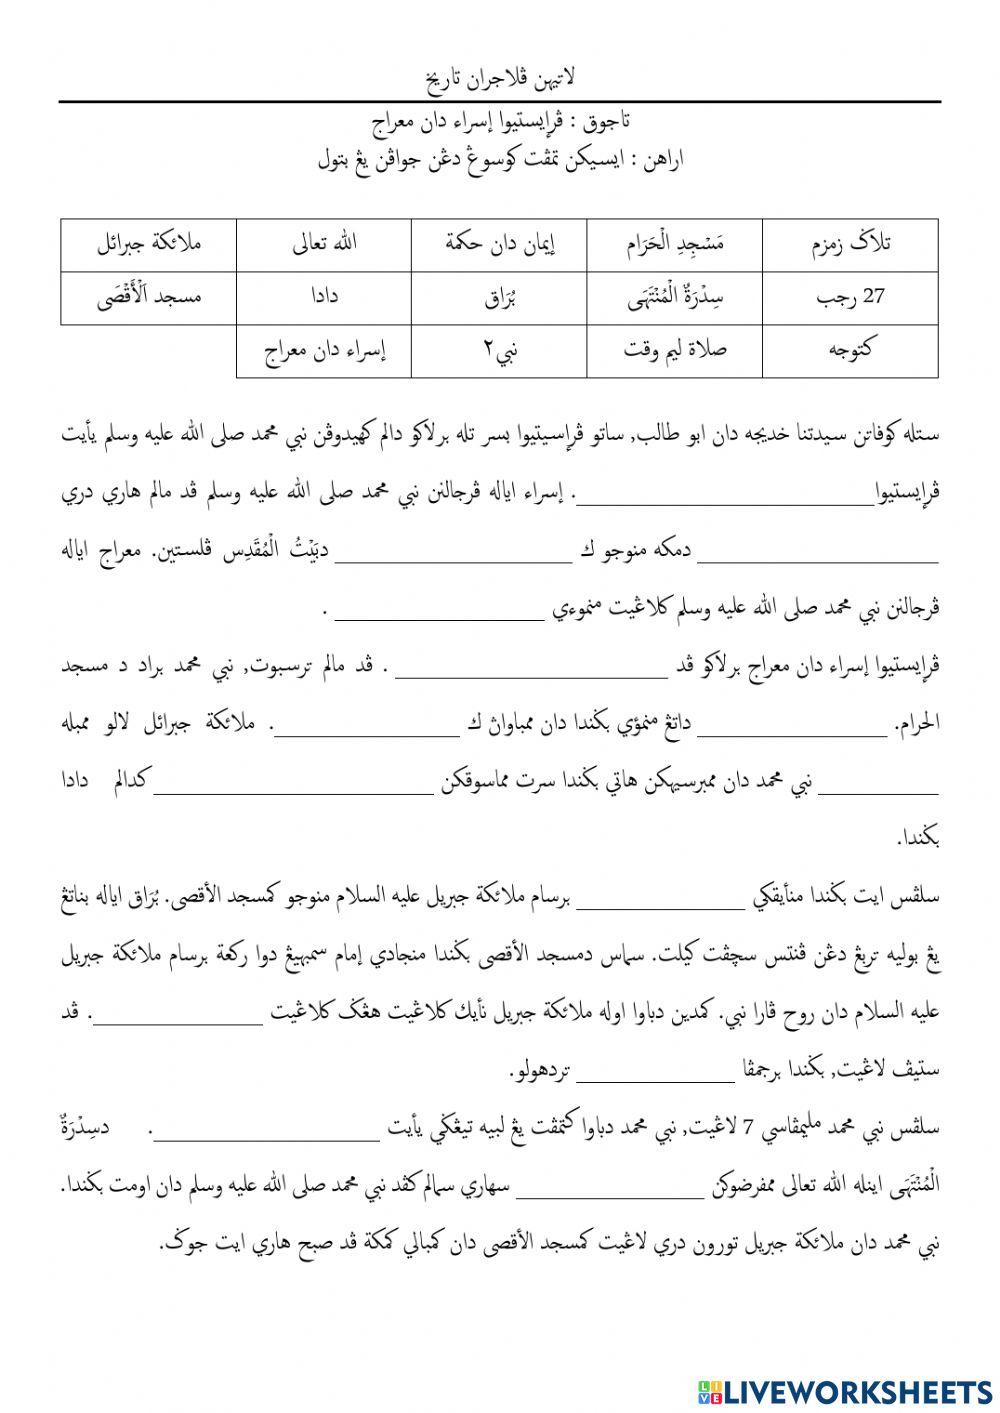 لاتيهن ڤلاجران تاريخ
تاجوق : ڤرايستيوا إسراء دان معراج
اراهن : ايسيكن تمڤت كوسوڠ دڠن جواڤن يڠ بتول
تلاݢ زمزم مَسْجِدِ الْحَرَام إيمان دان حكمة الله تعالى ملائكة جبرائل
27 رجب سِدْرَةٌ الْمُنْتَهَى بُرَاق دادا مسجد اَلْأَقْصَى
كتوجه صلاة ليم وقت نبي٢ إسراء دان معراج
ستله كوفاتن سيدتنا خديجه دان ابو طالب, ساتو ڤراسيتيوا بسر تله برلاكو دالم كهيدوڤن نبي محمد صلى الله عليه وسلم يأيت
ڤرايستيوا____________. إسراء اياله ڤرجالنن نبي محمد صلى الله عليه وسلم ڤد مالم هاري دري
____________ دمكه منوجو ك ____________ دبَيْتُ الْمُقَدِس ڤلستين. معراج اياله
ڤرجالنن نبي محمد صلى الله عليه وسلم كلاڠيت منموءي ____________ .
ڤرايستيوا إسراء دان معراج برلاكو ڤد ____________ . ڤد مالم ترسبوت, نبي محمد براد د مسجد
الحرام. ____________ داتڠ منمؤي بݢندا دان ممباواڽ ك ____________. ملائكة جبرائل لالو ممبله
____________ نبي محمد دان ممبرسيهكن هاتي بݢندا سرت مماسوقكن ____________كدالم دادا
بݢندا.
سلڤس ايت بݢندا منأيقكي ____________ برسام ملائكة جبريل عليه السلام منوجو كمسجد الأقصى. بُرَاق اياله بناتڠ
يڠ بوليه تربڠ دڠن ڤنتس سچڤت كيلت. سماس دمسجد الأقصى بݢندا منجادي إمام سمبهيڠ دوا ركعة برسام ملائكة جبريل
عليه السلام دان روح ڤارا نبي. كمدين دباوا اوله ملائكة جبريل نأيك كلاڠيت هڠݢ كلاڠيت ____________. ڤد
ستيڤ لاڠيت, بݢندا برجمڤا ____________ تردهولو.
سلڤس نبي محمد مليمڤاسي 7 لاڠيت, نبي محمد دباوا كتمڤت يڠ لبيه تيڠݢي يأيت ____________. دسِدْرَةٌ
الْمُنْتَهَى اينله الله تعالى ممفرضوكن ____________ سهاري سمالم كڤد نبي محمد صلى الله عليه وسلم دان اومت بݢندا.
نبي محمد دان ملائكة جبريل تورون دري لاڠيت كمسجد الأقصى دان كمبالي كمكة ڤد صبح هاري ايت جوݢ.
LIVEWORKSHEETS